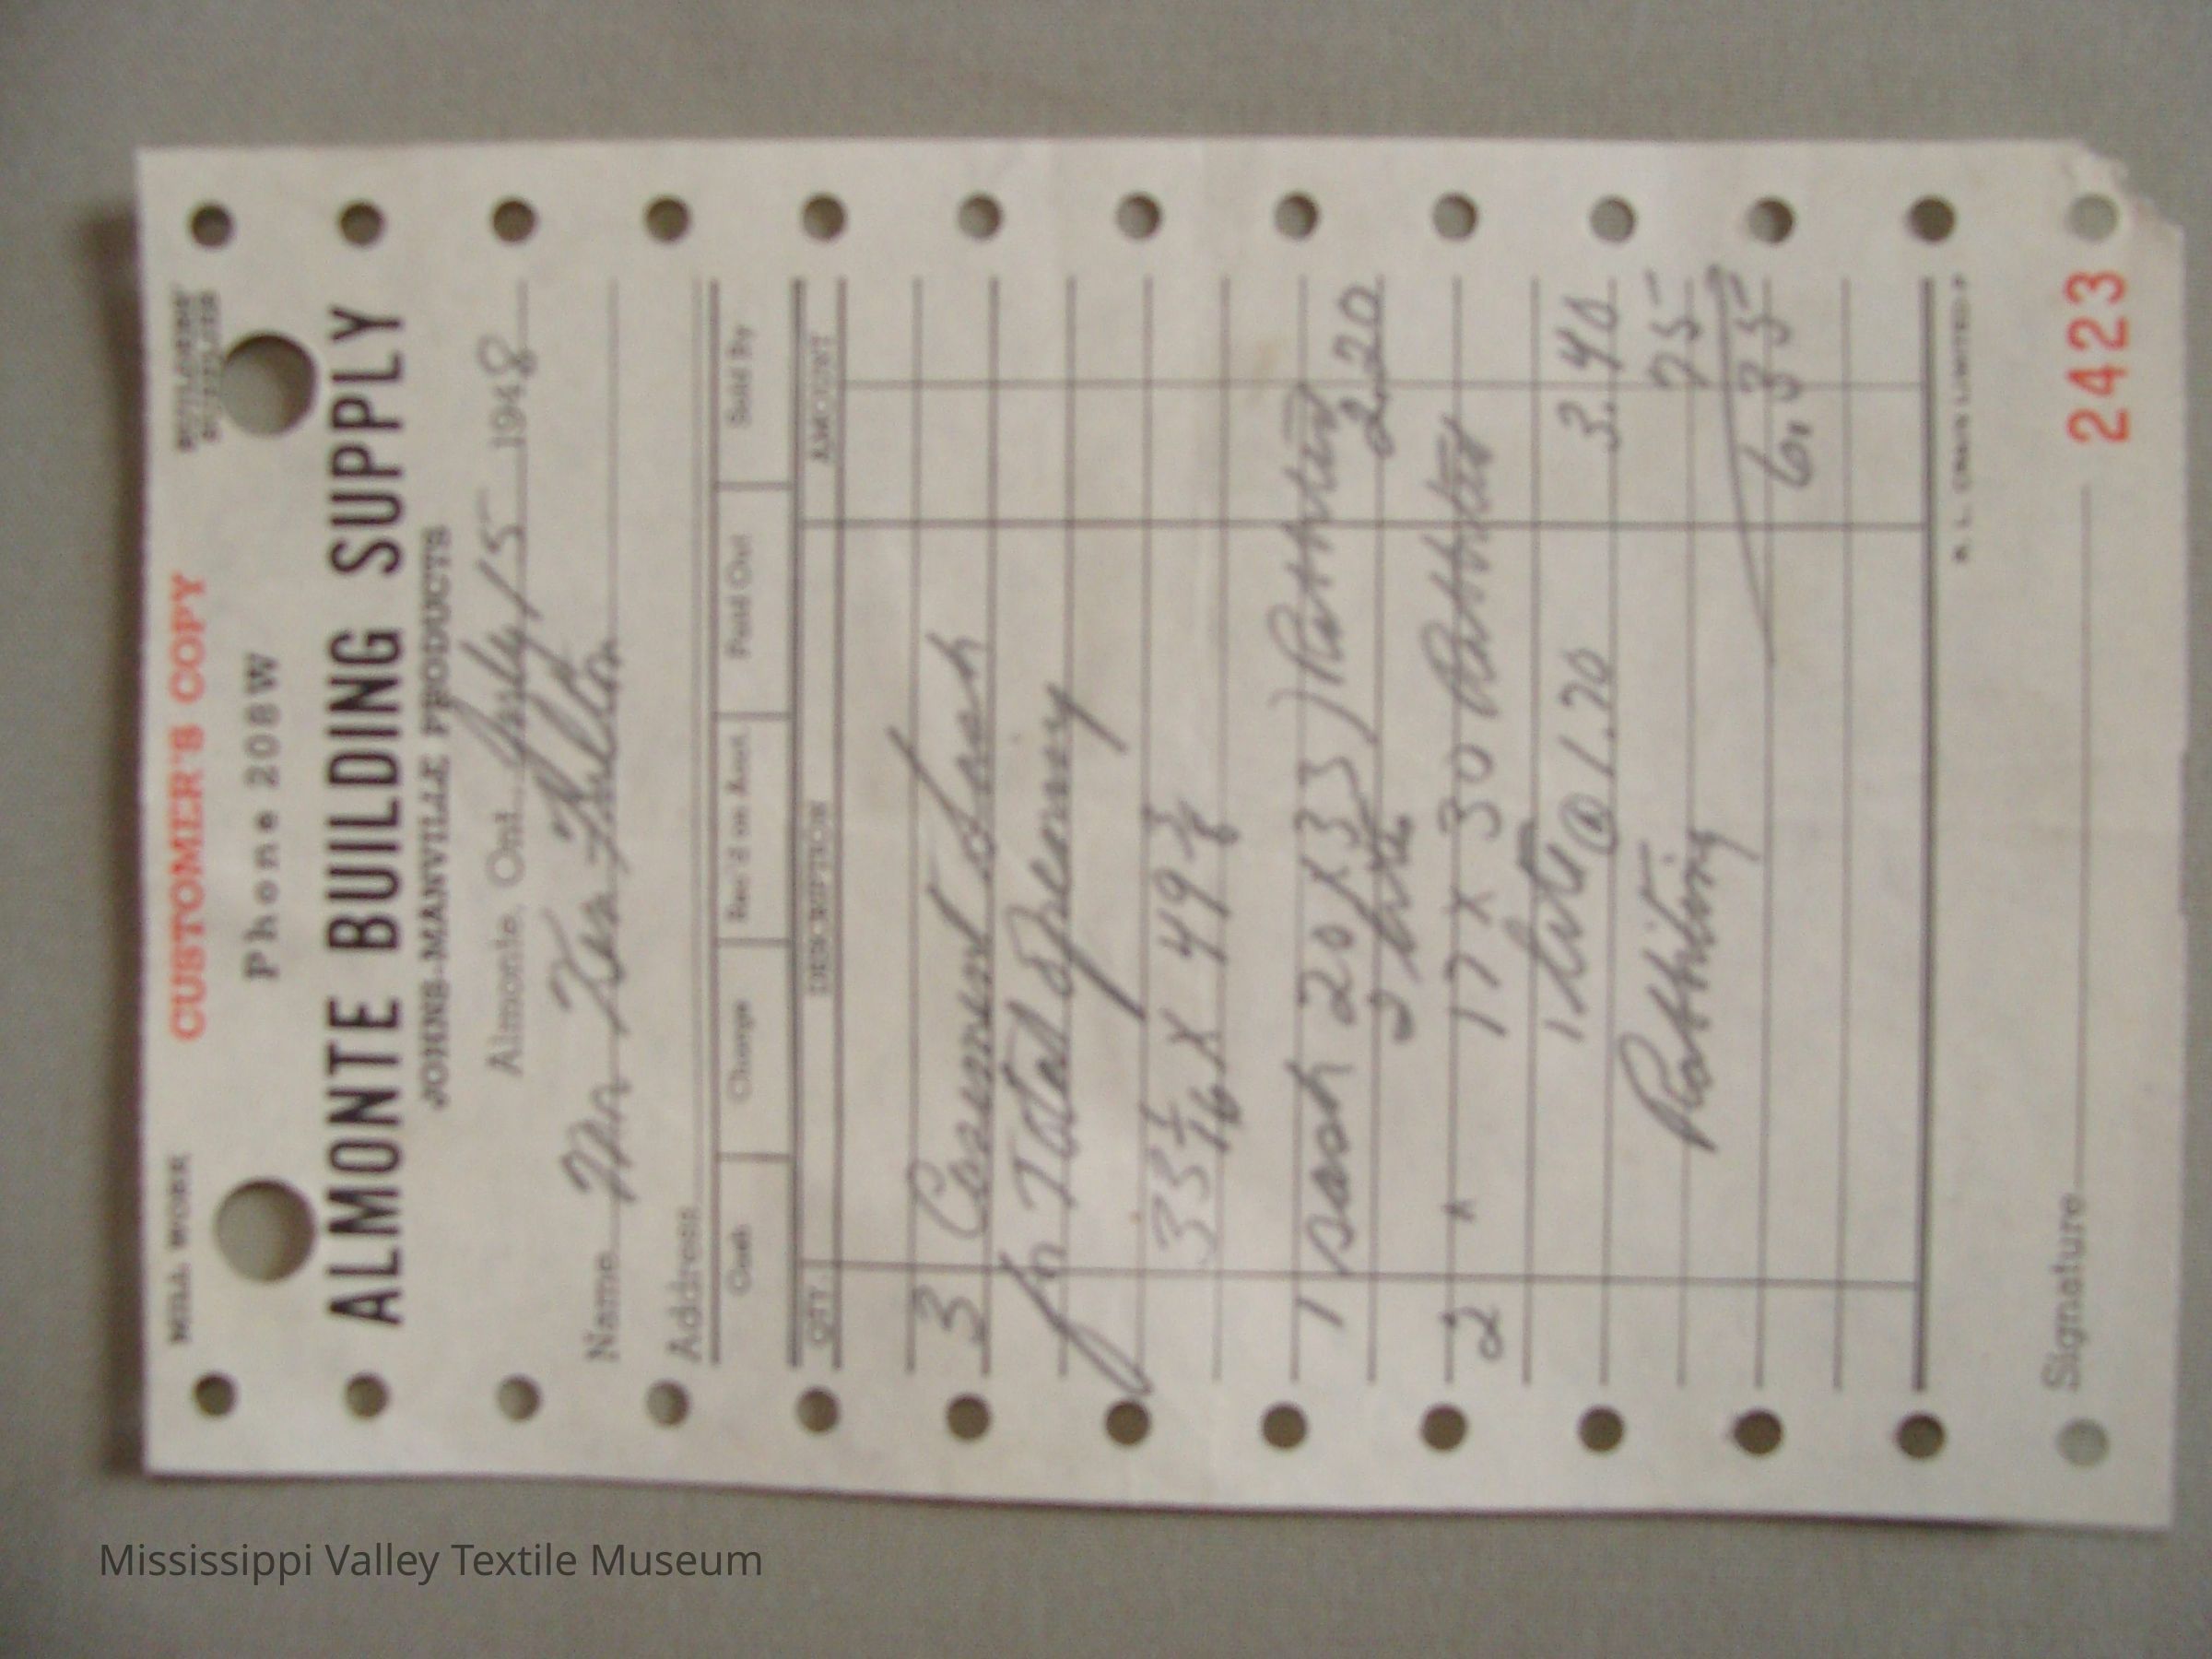 MILL WORK CUSTOMER'S COPY BUILDERS' SUPPLIES
Phone 208W
ALMONTE BUILDING SUPPLY
JOHNS-MANVILLE PRODUCTS
Almonte, Ont. July 15 1948
Name Mr Ken Fulton
Address
Cash Charge Rec'd on Acct. Paid Out Sold By
QTY. DESCRIPTION AMOUNT
3 Casement Sash
for Total Opening
33 1/16 X 49 3/8
1 sash 20 x 33 ) Puttied
2 lite 2.20
2 " 17 x 30 Puttied
1 lite @ 1.70 3.40
Puttying 75
6.35
R. L. CRAIN LIMITED
Signature 2423
Mississippi Valley Textile Museum